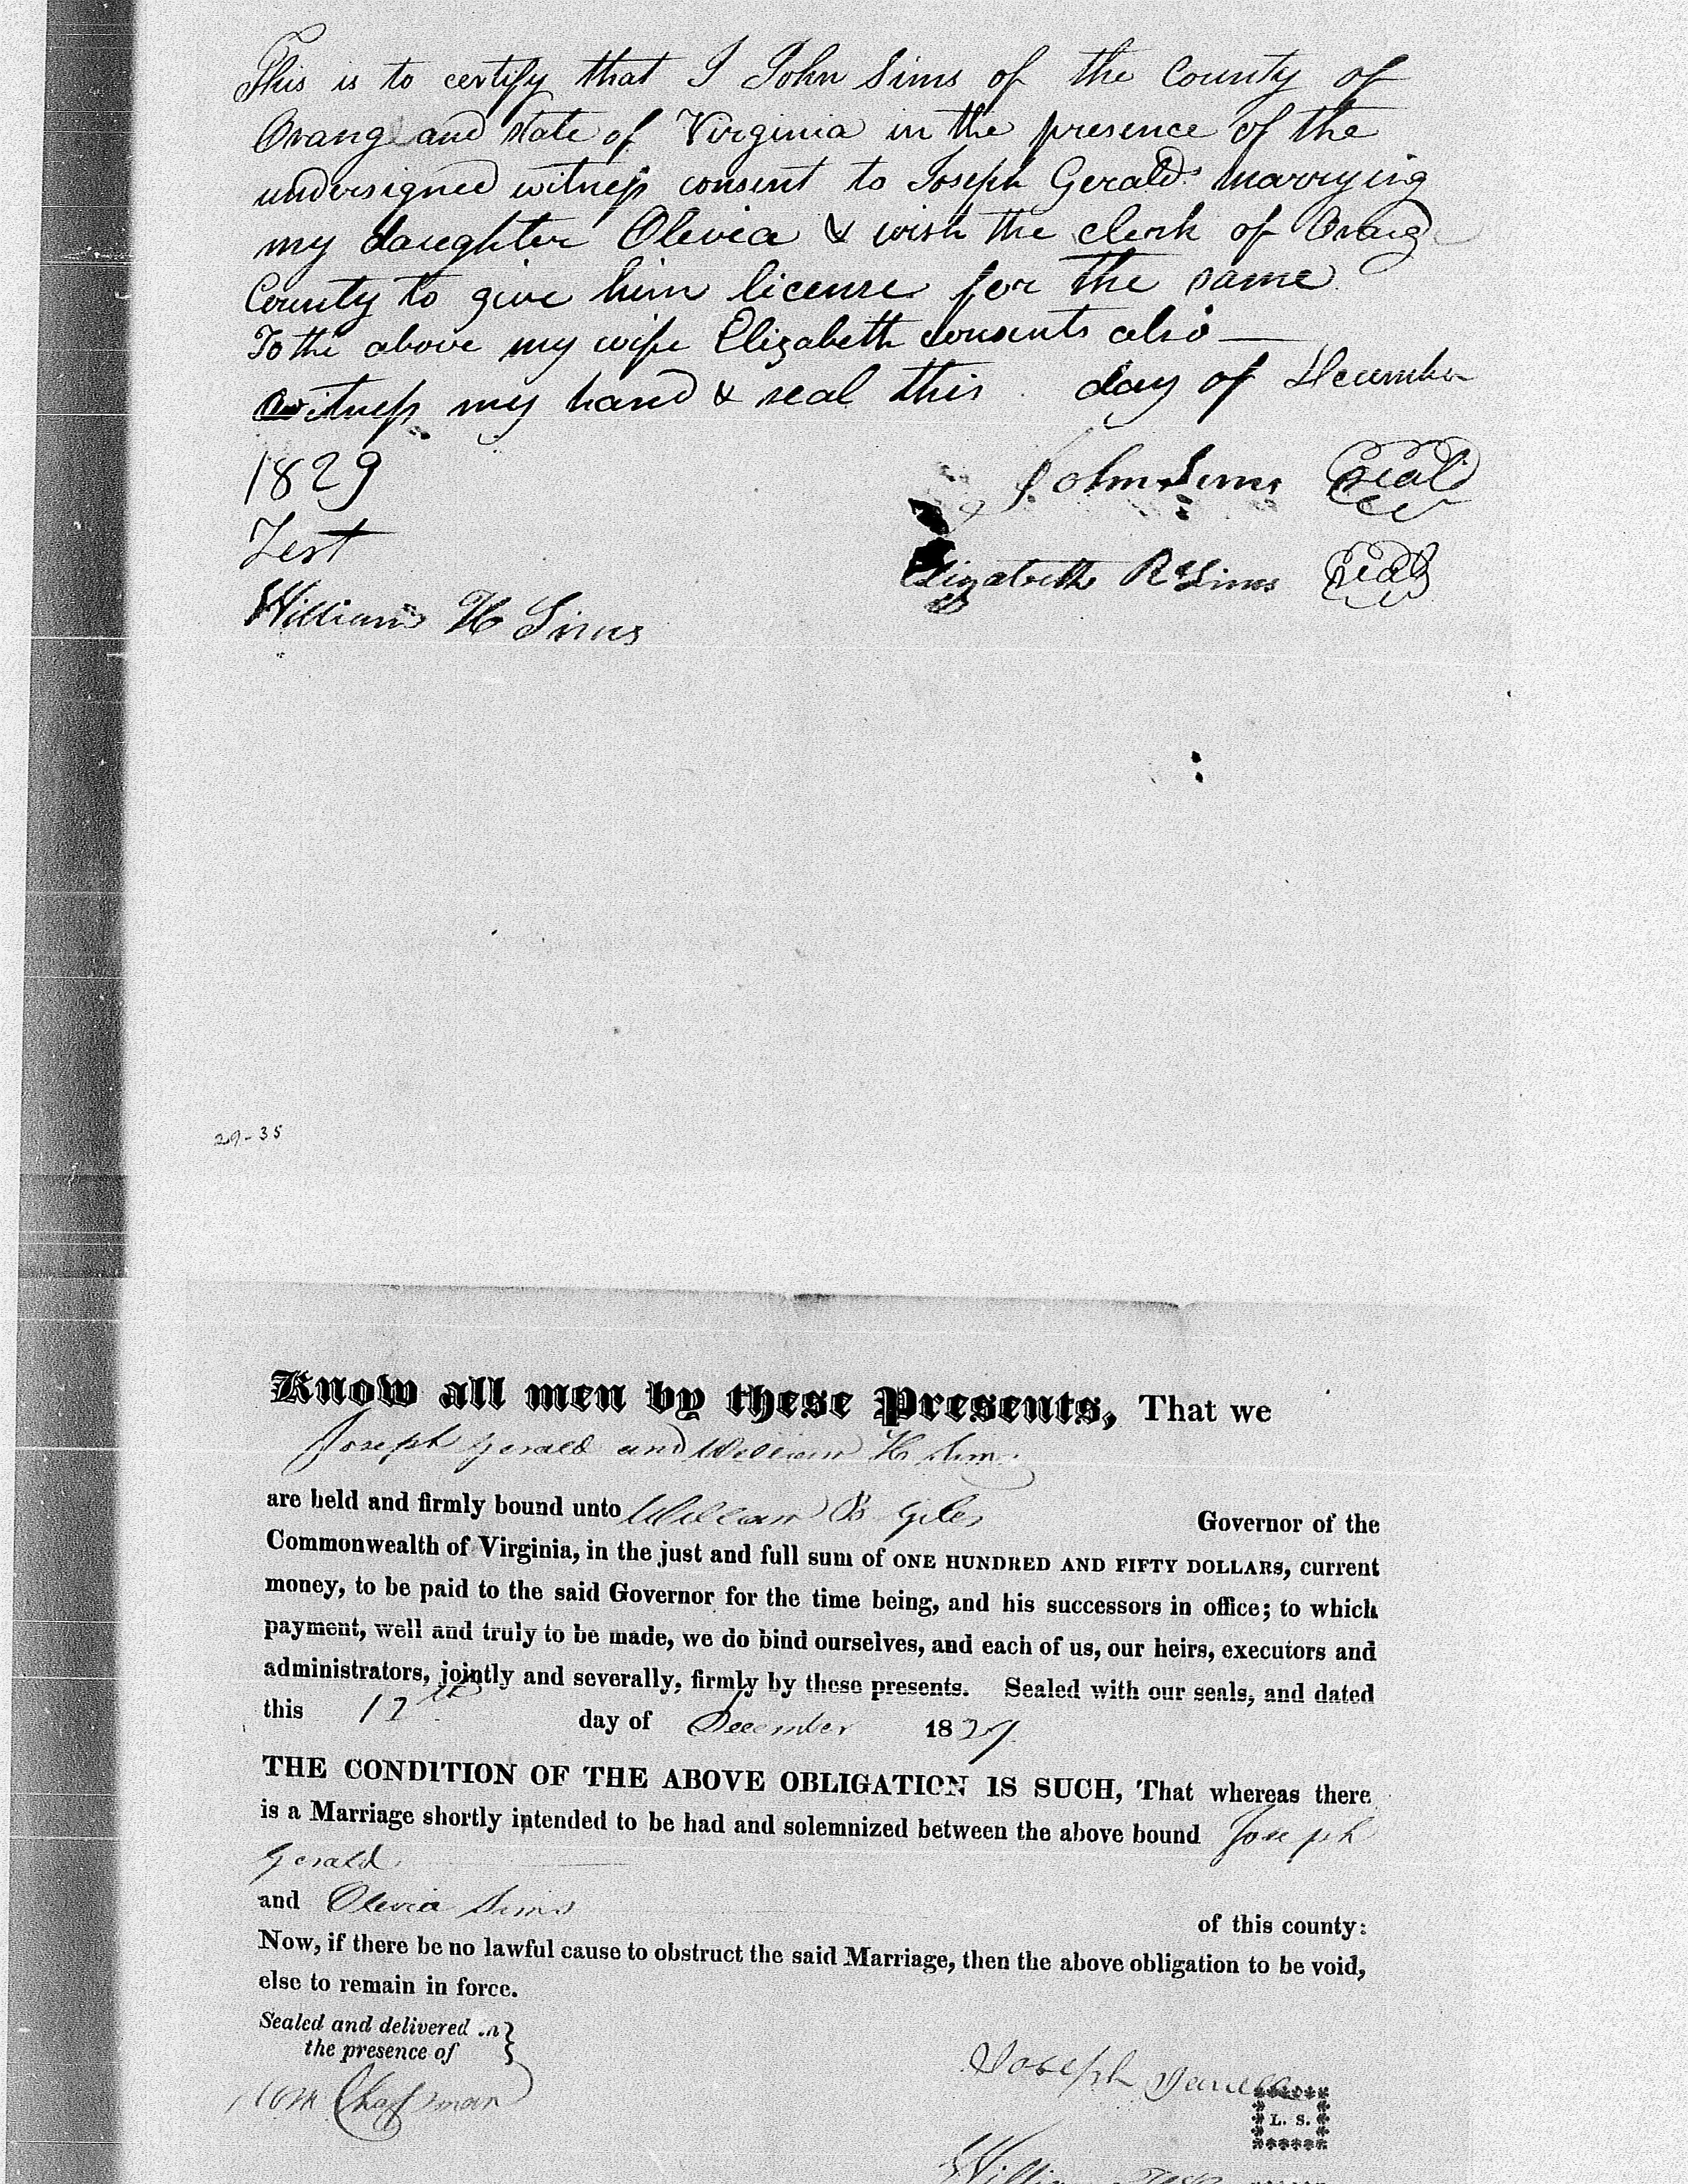 This is to certify that I John Sims of the County of
Orang and state of Virginia in the presence of the
undersigned witness consent to Joseph Gerald marrying
my daughter Olivia & wish the clerk of Orang
County to give him license for the same
To the above my wife Elizabeth consents also —
witness my hand & seal this day of December
1829
John Sims Seal
Test
Elizabeth R Sims Seal
William H Sims
29-35
Know all men by these Presents, That we
Joseph Gerald and William H Sims
are held and firmly bound unto William B Giles Governor of the
Commonwealth of Virginia, in the just and full sum of ONE HUNDRED AND FIFTY DOLLARS, current
money, to be paid to the said Governor for the time being, and his successors in office; to which
payment, well and truly to be made, we do bind ourselves, and each of us, our heirs, executors and
administrators, jointly and severally, firmly by these presents. Sealed with our seals, and dated
this 17th day of December 1829
THE CONDITION OF THE ABOVE OBLIGATION IS SUCH, That whereas there
is a Marriage shortly intended to be had and solemnized between the above bound Joseph
Gerald
and Olevia Sims of this county:
Now, if there be no lawful cause to obstruct the said Marriage, then the above obligation to be void,
else to remain in force.
Sealed and delivered in }
the presence of
Joseph
Chapman
L. S.
William